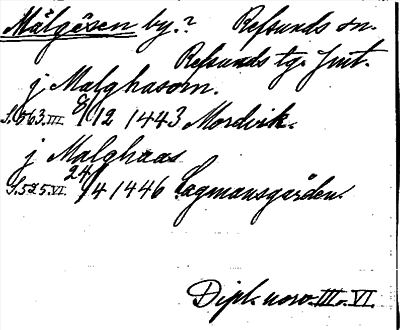 Målgåsen by.? Refsunds sn.
Refsunds tg. Jmt.
j Malghasom.
S. 563. III. 8/12 1443 Mordvik.
j Malghaas
S. 525. VI. 24/4 1446 Lagmansgården.
Dipl. norv. III. VI.